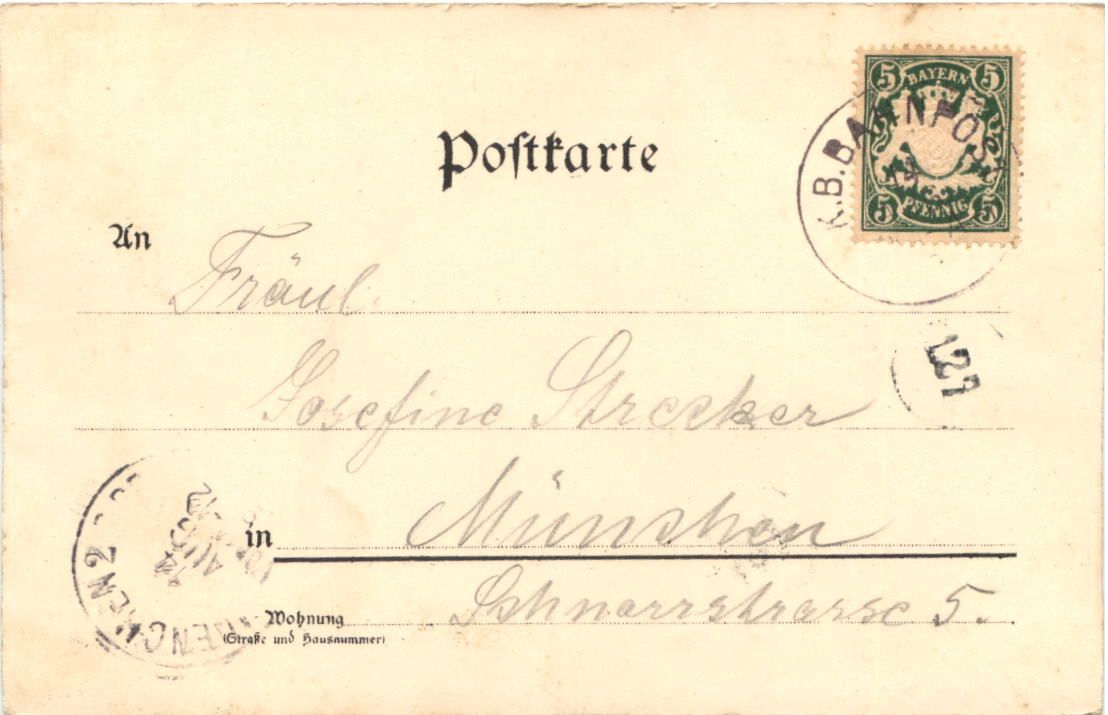 Postkarte
5 BAYERN 5
5 PFENNIG 5
K.B.BAHNPOST
An
Fräul.
Josefine Strecker
127
in München
Wohnung
(Straße und Hausnummer)
Schnorrstrasse 5.
14 AUG
MÜNCHEN 2